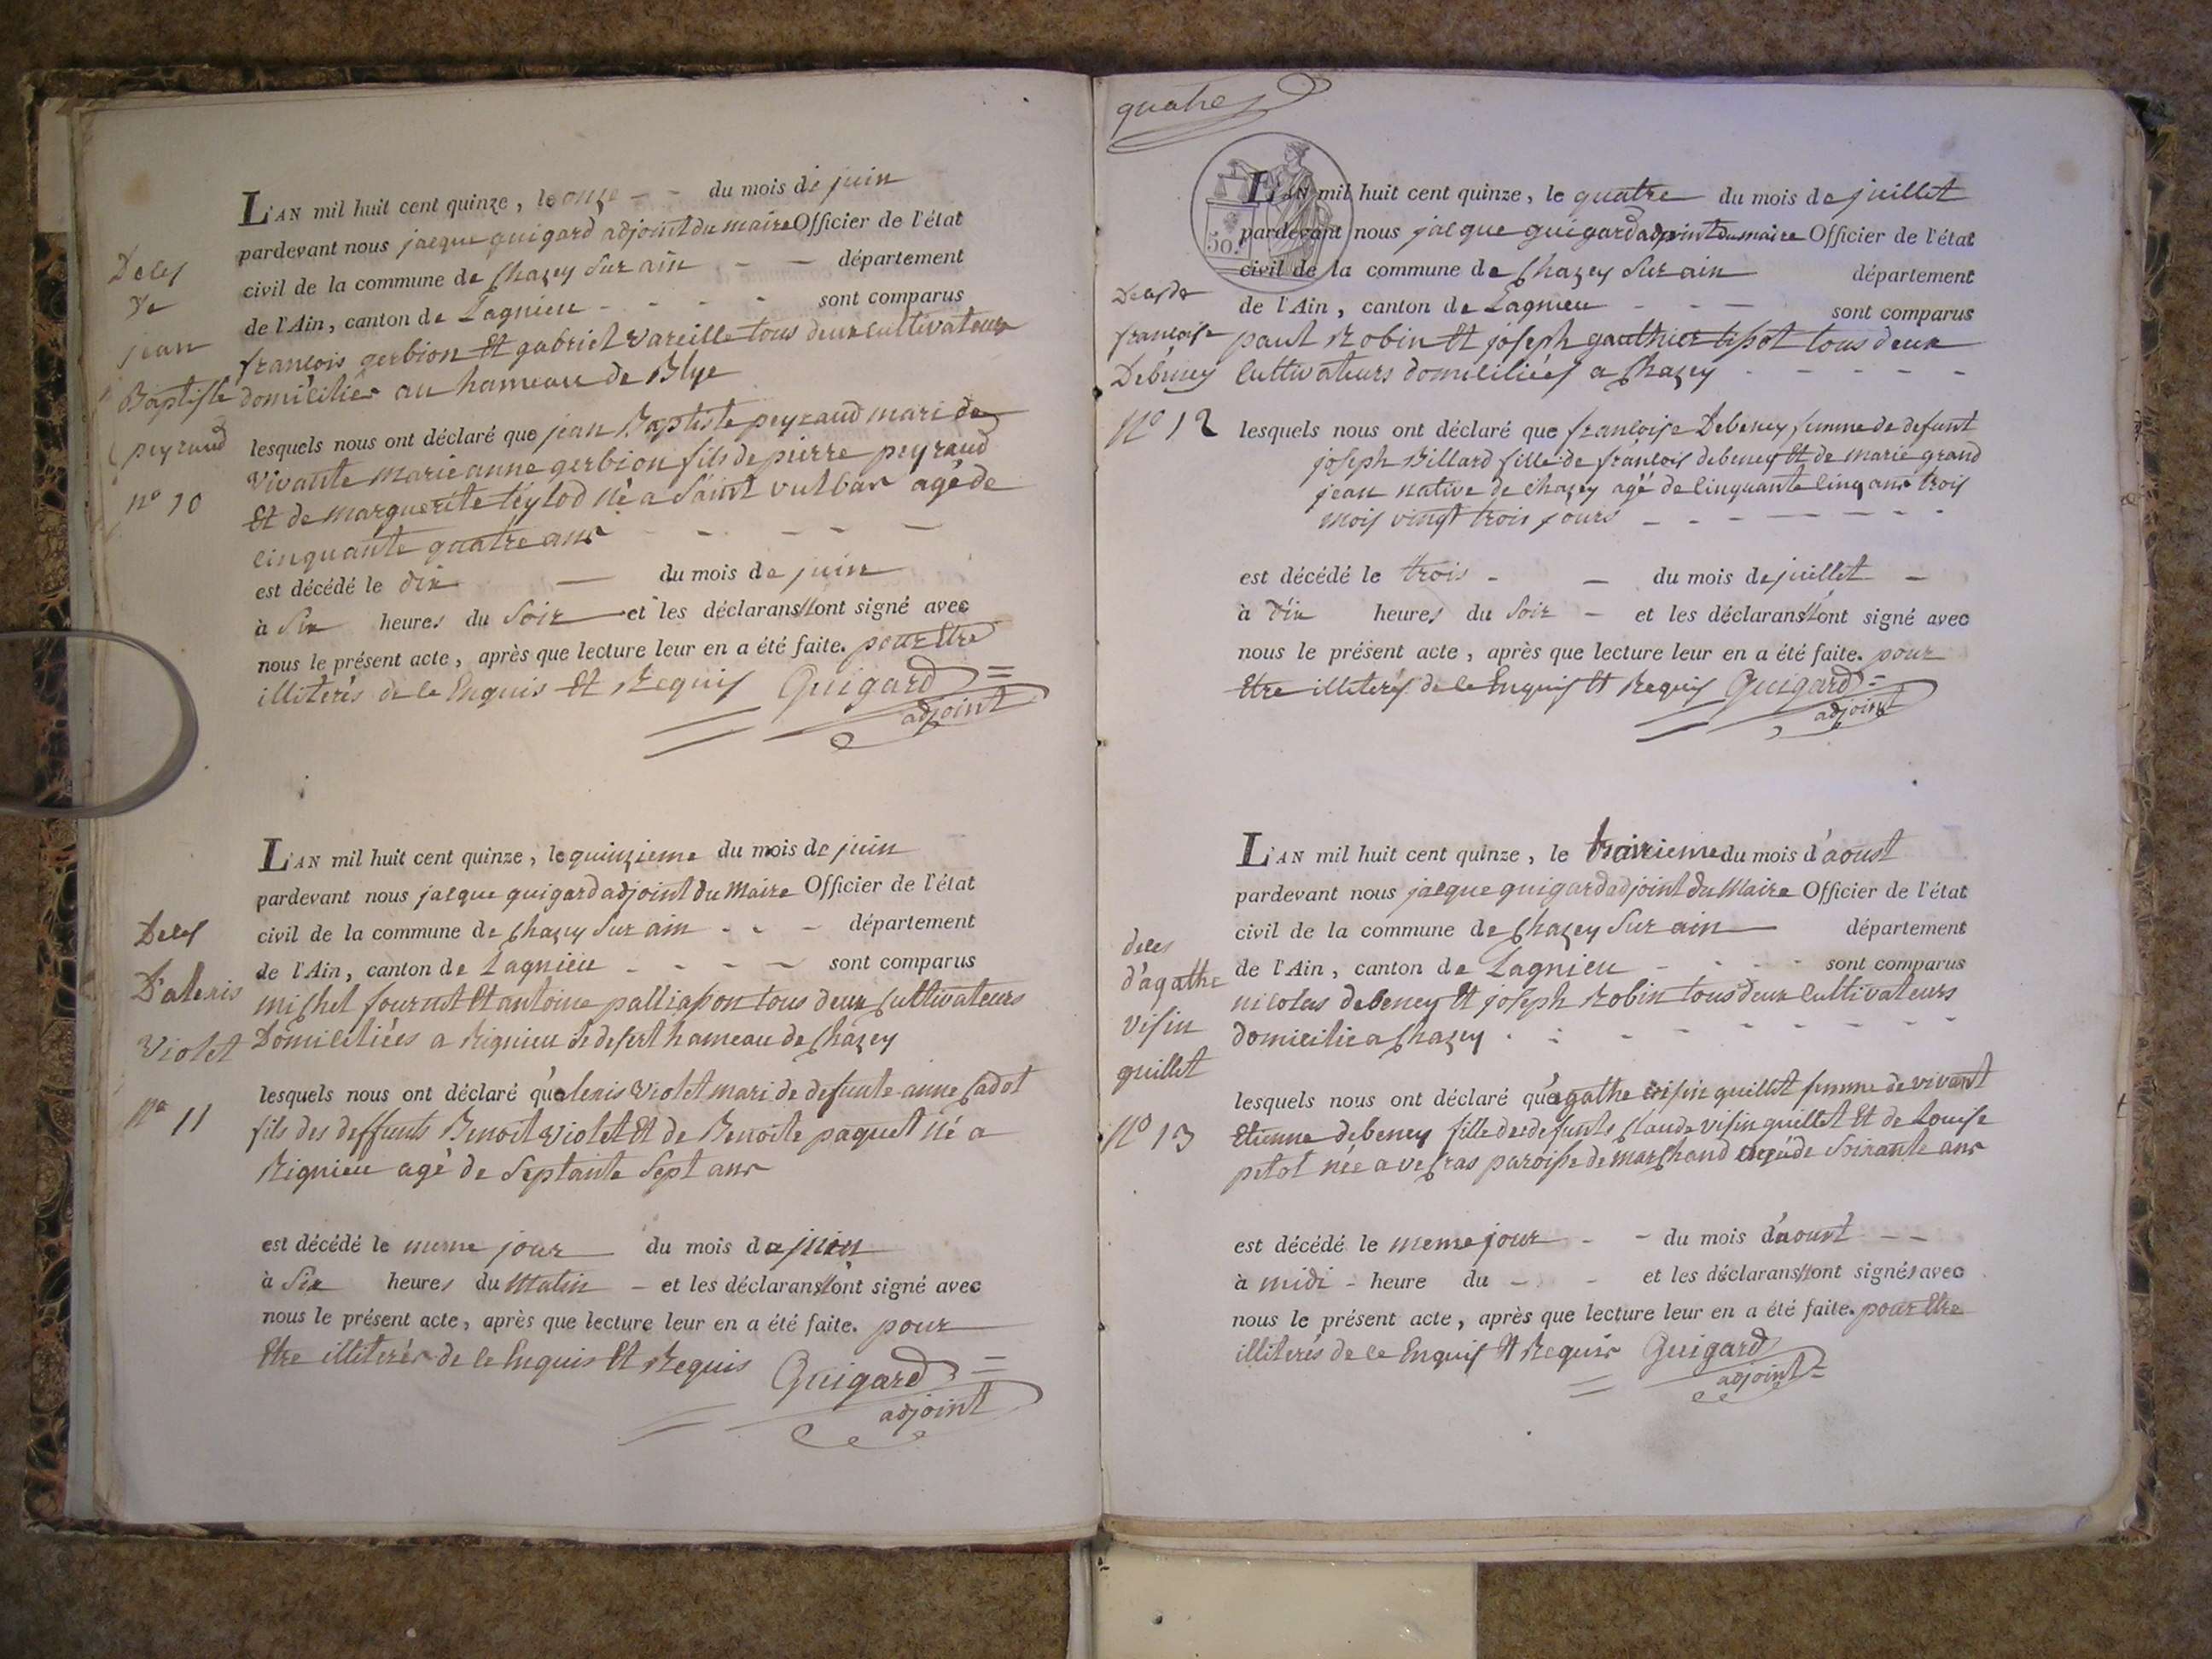 Deces
de
jean
Baptiste
peyraud
n° 10
L'AN mil huit cent quinze, le onze - - du mois de juin
pardevant nous jacque guigard adjoint du maire Officier de l'état
civil de la commune de Chazey Sur ain - - département
de l'Ain, canton de Lagnieu - - - - sont comparus
francois gerbion Et gabriel vareille tous deux cultivateurs
domicilies au hameau de Blye
lesquels nous ont déclaré que jean Baptiste peyraud mari de
Vivante marie anne gerbion fils de pierre peyraud
Et de marguerite né a Saint vulbas agé de
cinquante quatre ans - - - -
est décédé le dix — du mois de juin
à Six heures du Soir — et les déclarans ont signé avec
nous le présent acte, après que lecture leur en a été faite. pour Etre
illiterés de ce Enquis Et Requis Guigard
adjoint
Deces
D'alexis
Violet
n° 11
L'AN mil huit cent quinze, le quinzieme du mois de juin
pardevant nous jacque guigard adjoint du Maire Officier de l'état
civil de la commune de Chazey Sur ain - - - département
de l'Ain, canton de Lagnieu - - - - sont comparus
michel fournet Et antoine palliasson tous deux Cultivateurs
Domiciliées a Rignieu le desert hameau de Chazey
lesquels nous ont déclaré qu'alexis Violet mari de defunte anne Cadot
fils des deffunts Benoit Violet Et de Benoite paquet né a
Rignieu agé de Septante Sept ans
est décédé le meme jour — du mois de juin
à Six heures du Matin - et les déclarans ont signé avec
nous le présent acte, après que lecture leur en a été faite. pour
Etre illiterés de ce Enquis Et Requis Guigard
adjoint
quatre
50.
Deces de
francoise
Debeney
N° 12
L'AN mil huit cent quinze, le quatre du mois de juillet
pardevant nous jacque guigard adjoint du maire Officier de l'état
civil de la commune de Chazey Sur ain département
de l'Ain, canton de Lagnieu - - — sont comparus
paul Robin Et joseph gauthier tous deux
Cultivateurs domiciliées a Chazey - - - - -
lesquels nous ont déclaré que francoise Debeney femme de defunt
joseph Billard fille de francois debeney Et de marie grand
jean native de Chazey agé de cinquante cinq ans trois
mois vingt trois jours - - - - - - -
est décédé le trois - - du mois de juillet -
à dix heures du Soir - et les déclarans ont signé avec
nous le présent acte, après que lecture leur en a été faite. pour
Etre illiterés de ce Enquis Et Requis Guigard
adjoint
deces
d'agathe
visin
guillet
N° 13
L'AN mil huit cent quinze, le troixieme du mois d'aoust
pardevant nous jacque guigard adjoint du Maire Officier de l'état
civil de la commune de Chazey Sur ain — département
de l'Ain, canton de Lagnieu - - - - sont comparus
nicolas debeney Et joseph Robin tous deux Cultivateurs
domicilie a Chazey - - - - - - - -
lesquels nous ont déclaré qu'agathe visin guillet femme de vivant
Etienne debeney fille de defunts Claude visin guillet Et de Louise
petot née a paroisse de marchand agée de Soixante ans
est décédé le meme jour - - du mois d'aoust - -
à midi - heure du - - et les déclarans ont signés avec
nous le présent acte, après que lecture leur en a été faite. pour Etre
illiterés de ce Enquis Et Requis Guigard
adjoint